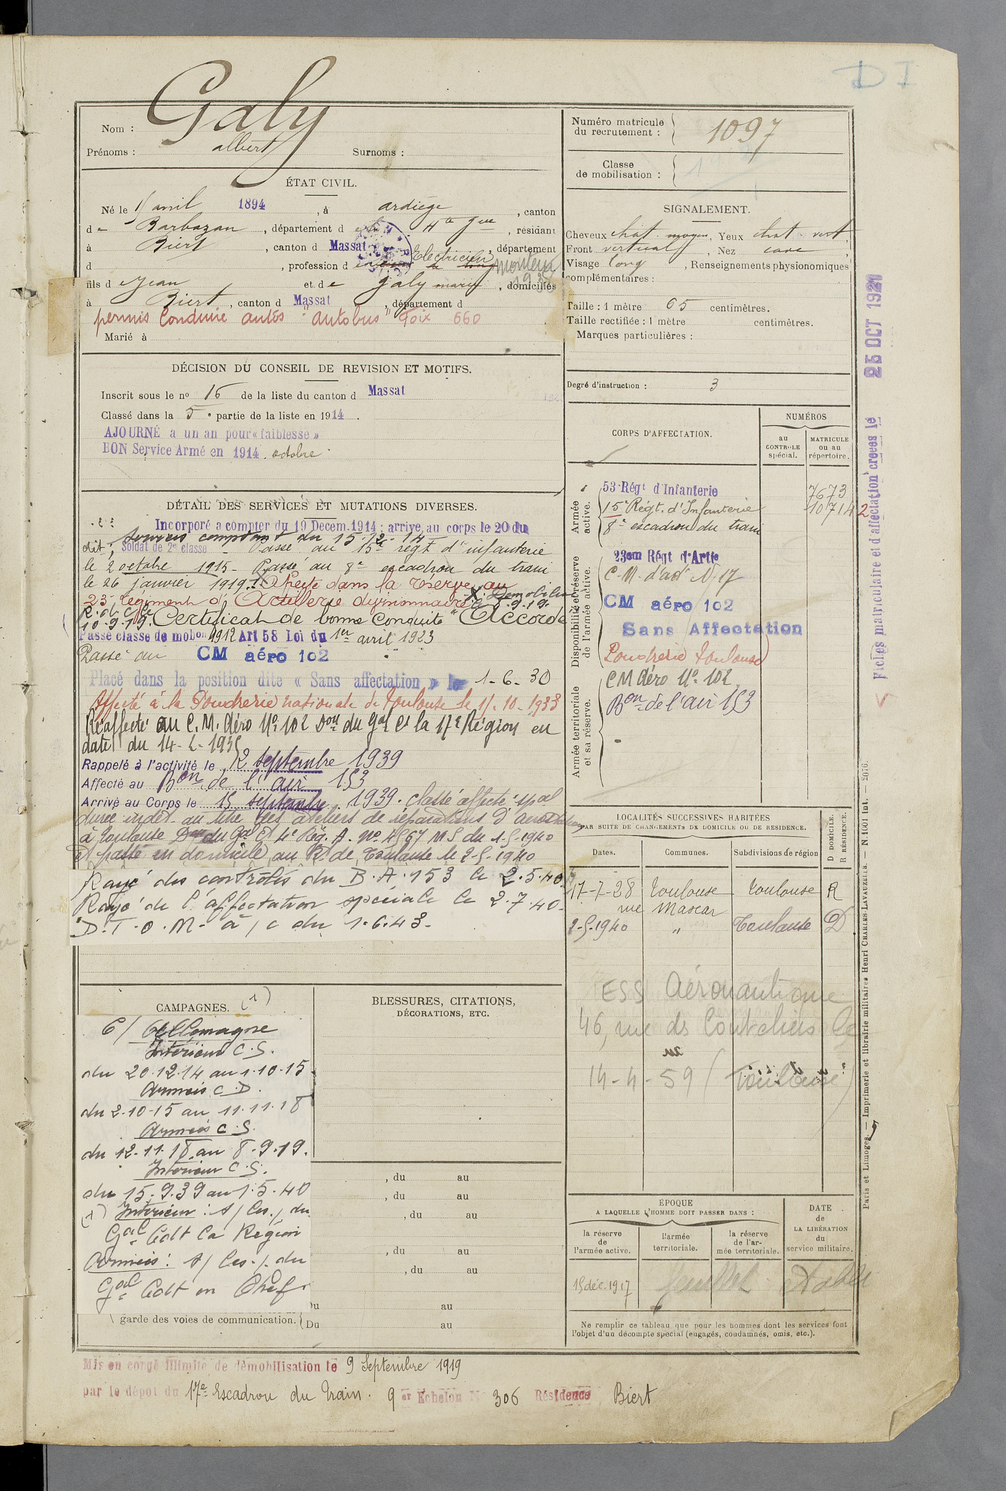 D I
Nom : Galy
Prénoms : albert Surnoms :
ÉTAT CIVIL.
Né le 15 avril 1894, à ardiège, canton
de Barbazan, département d Hte Gne, résidant
à Biert, canton d Massat, département
d , profession d Electricien monteur
fils d e Jean et de Galy marie, domiciliés
à Biert, canton d Massat, département d
permis Conduire autos "autobus" Foix 660
Marié à
DÉCISION DU CONSEIL DE REVISION ET MOTIFS.
Inscrit sous le no 16 de la liste du canton d Massat
Classé dans la 5e partie de la liste en 1914.
AJOURNÉ à un an pour « faiblesse »
BON Service Armé en 1914. octobre
DÉTAIL DES SERVICES ET MUTATIONS DIVERSES.
Incorporé a compter du 19 Decem. 1914 ; arrivé au corps le 20 du
Services comptent du 15-12-14
dit, Soldat de 2e classe - Passé au 15e régt d'infanterie
le 2 octobre 1915. Passé au 8e escadron du train
le 26 janvier 1917. Affecté dans la réserve au
23e régiment d'Artillerie divisionnaire X. Démobilisé
10-9-19. Certificat de bonne Conduite "Accordé"
Passé classe de mobon 1912 Art 58 Loi du 1er avril 1923
Passé au CM aéro 102
Placé dans la position dite « Sans affectation » le 1-6-30
Affecté à la Poudrerie nationale de Toulouse le 15.10.1933
Réaffecté au C.M. Aéro No 102 Don du gal Ct la 17e Région en
date du 14-2-1935
Rappelé à l'activité le 2 septembre 1939
Affecté au Bon de l'air 153
Arrivé au Corps le 15 septembre 1939. classé affecté spal
durée indét. au titre des ateliers de réparations d'aviation
à Toulouse Don du Gal Ct 4e Rég. A. No 4567 M.S du 1-5-1940
et passé en domicile au R de Toulouse le 2-5-1940
Rayé des contrôles du B.A.153 le 2.5.40.
Rayé de l'affectation spéciale le 2.7.40.
D.T.O.M. à /c du 1.6.43.
CAMPAGNES. (1)
C/ Allemagne
Intérieur C.S.
du 20.12.14 au 1.10.15.
Armées C.D.
du 2.10.15 au 11.11.18
Armées C.S.
du 12.11.18 au 8.9.19.
Intérieur C.S.
du 15.9.39 au 1.5.40
(1) Intérieur : s/ les /. du
Gal Cdt la Région
Armées : s/ les /. du
Gal Cdt en Chef
garde des voies de communication.
BLESSURES, CITATIONS,
DÉCORATIONS, ETC.
, du au
, du au
, du au
, du au
, du au
Du au
Du au
Mis en congé illimité de démobilisation le 9 Septembre 1919
par le dépôt du 17e Escadron du Train. 9 er Echelon No 306 Résidence Biert
Numéro matricule
du recrutement : 1097
Classe
de mobilisation :
SIGNALEMENT.
Cheveux chat moyen, Yeux chat vert.
Front vertical, Nez cave
Visage long, Renseignements physionomiques
complémentaires :
Taille : 1 mètre 65 centimètres.
Taille rectifiée : 1 mètre centimètres.
Marques particulières :
Degré d'instruction : 3
CORPS D'AFFECTATION.
NUMÉROS
au
CONTROLE
spécial.
MATRICULE
ou au
répertoire.
Armée
active.
53 Régt d'Infanterie 7673
15e Régt. d'Infanterie 10714
8e escadron du train
Disponibilité et réserve
de l'armée active.
23em Régt d'Artie
C.M. d'art. N. 17
CM aéro 102
Sans Affectation
Poudrerie Toulouse
CM Aéro No 102
Armée territoriale
et sa réserve.
Bon de l'air 153
LOCALITÉS SUCCESSIVES HABITÉES
PAR SUITE DE CHANGEMENTS DE DOMICILE OU DE RÉSIDENCE.
D DOMICILE.
R RÉSIDENCE.
Dates. Communes. Subdivisions de région
17-7-28 Toulouse Toulouse R
rue Mascar
2-5-1940 " Toulouse D
ESS Aéronautique
46, rue ds Couteliers
14-4-59 (Toulouse)
ÉPOQUE
A LAQUELLE L'HOMME DOIT PASSER DANS :
la réserve
de
l'armée active.
l'armée
territoriale.
la réserve
de l'ar-
mée territoriale.
DATE
de
LA LIBÉRATION
du
service militaire.
15 déc. 1917
Ne remplir ce tableau que pour les hommes dont les services font
l'objet d'un décompte spécial (engagés, condamnés, omis, etc.).
Fiches matriculaire et d'affectation créées le 25 OCT 1921
Paris et Limoges. — Imprimerie et librairie militaires Henri CHARLES-LAVAUZELLE.